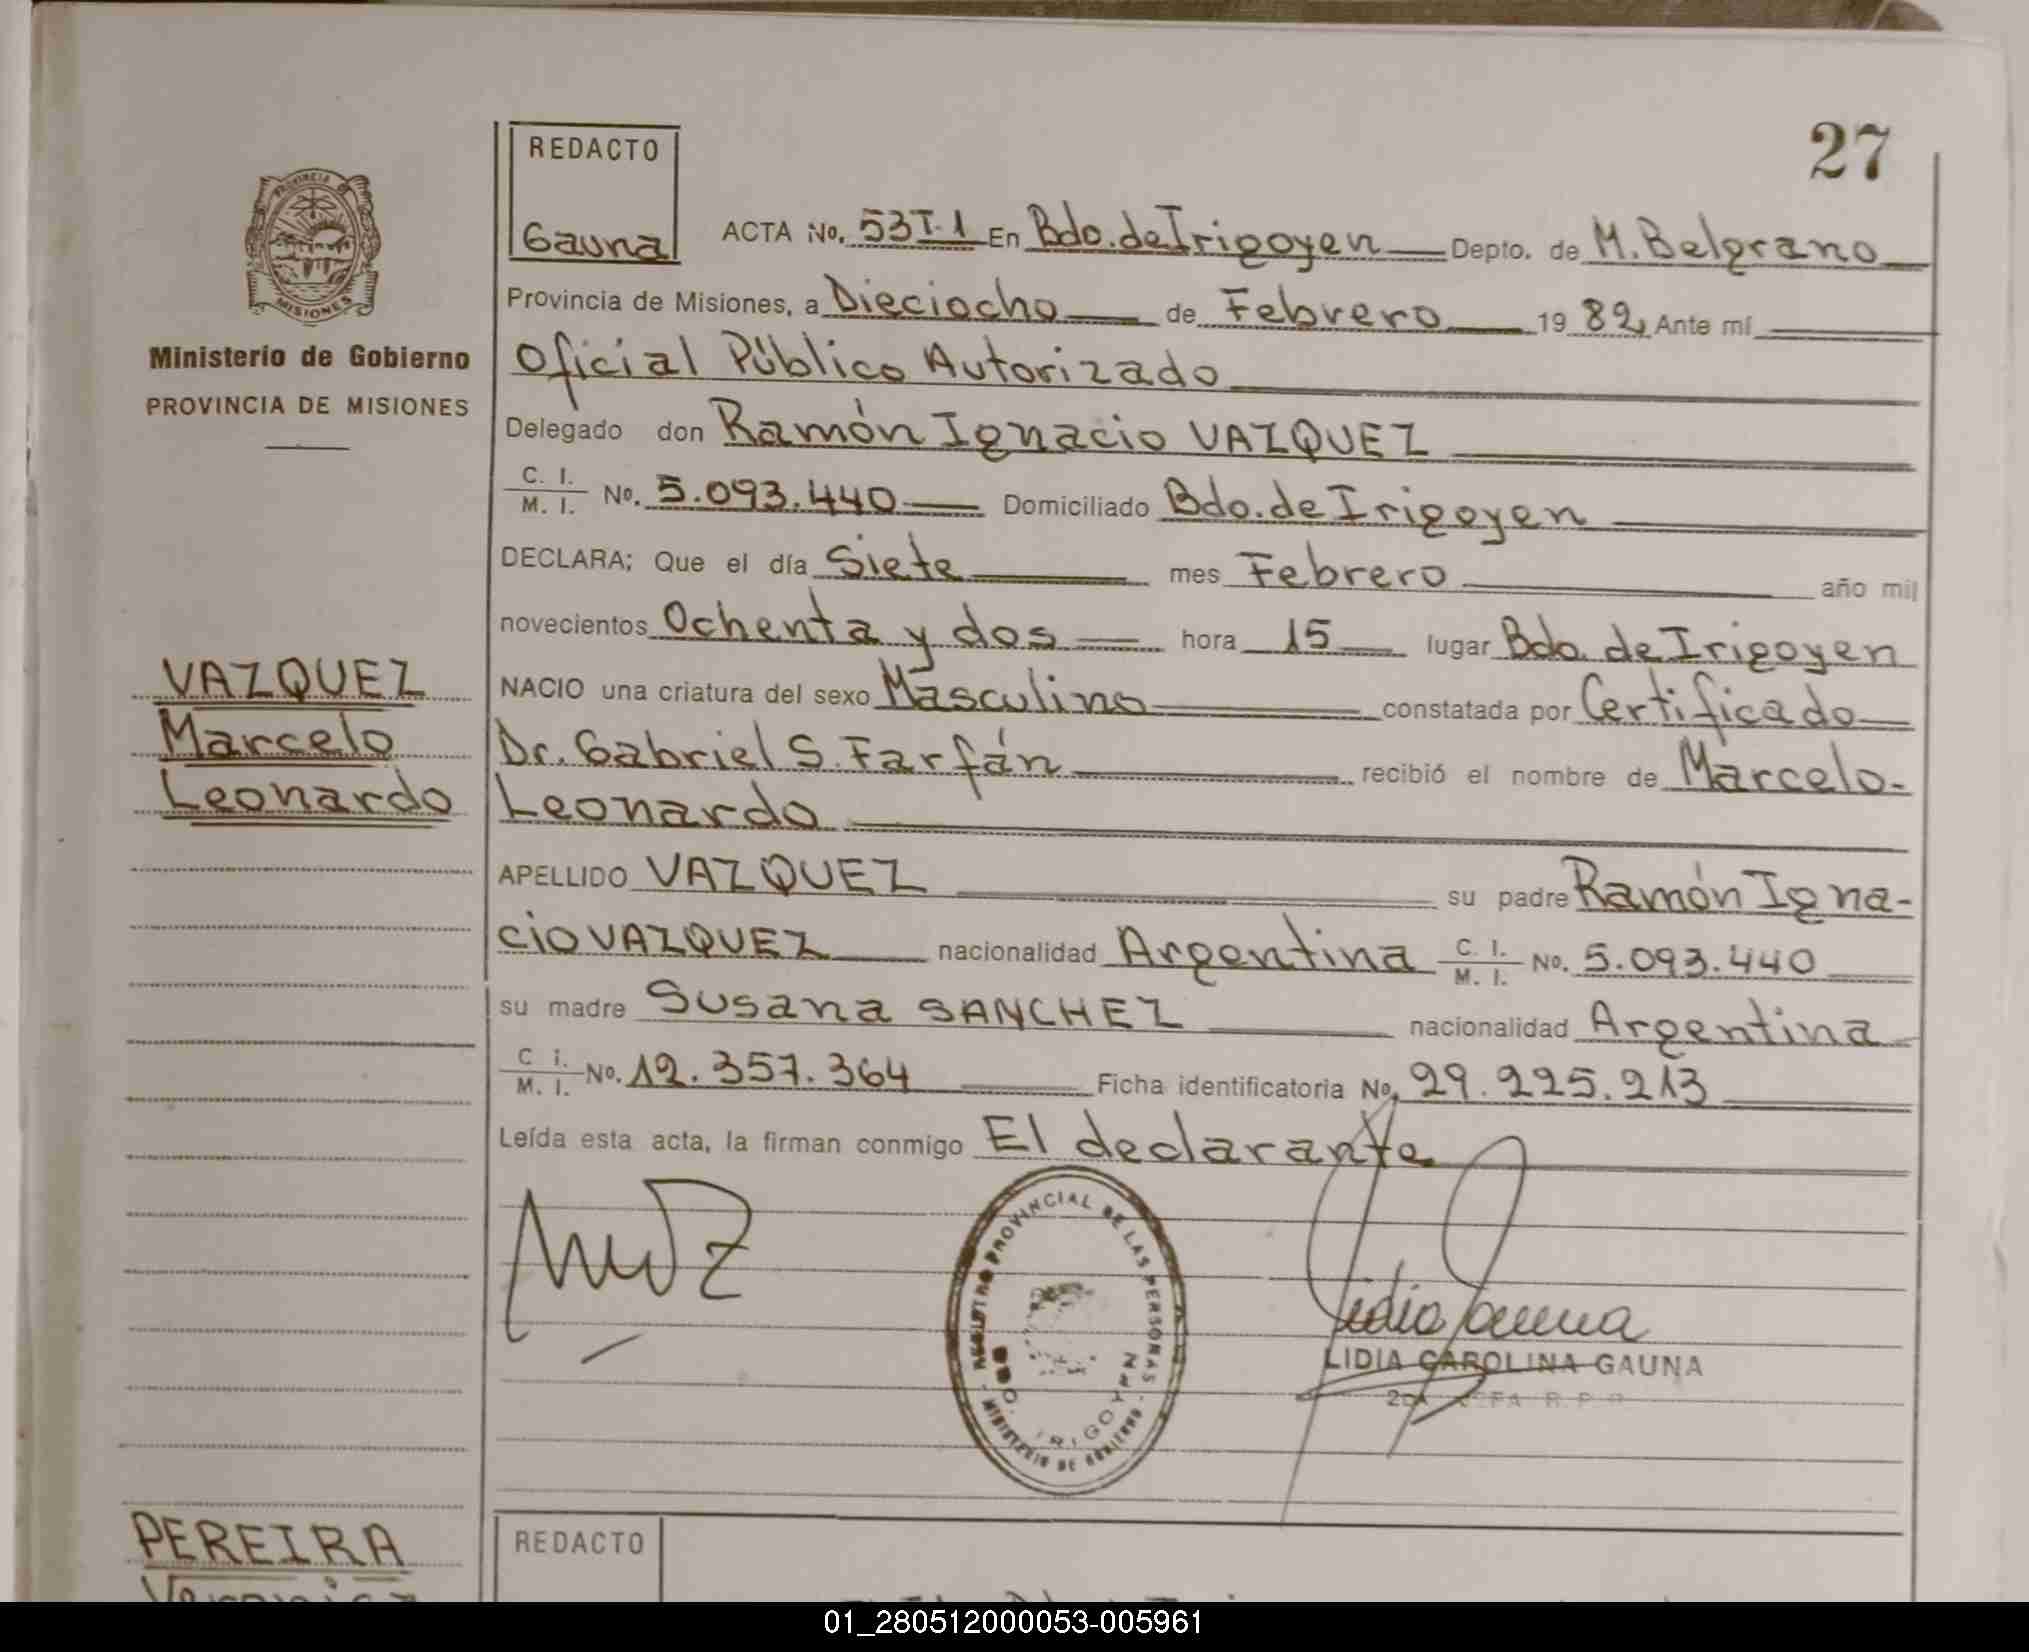 27
REDACTO
Gauna
ACTA No. 53T.1 En Bdo. de Irigoyen Depto. de M. Belgrano
Provincia de Misiones, a Dieciocho de Febrero 1982, Ante mí
Oficial Público Autorizado
Delegado don Ramón Ignacio VAZQUEZ
C. I. / M. I. No. 5.093.440 Domiciliado Bdo. de Irigoyen
DECLARA; Que el día Siete mes Febrero año mil
novecientos Ochenta y dos hora 15 lugar Bdo. de Irigoyen
NACIO una criatura del sexo Masculino constatada por Certificado
Dr. Gabriel S. Farfán recibió el nombre de Marcelo-
Leonardo
APELLIDO VAZQUEZ su padre Ramón Igna-
cio VAZQUEZ nacionalidad Argentina C. I. / M. I. No. 5.093.440
su madre Susana SANCHEZ nacionalidad Argentina
C i. / M. I. No. 12.357.364 Ficha identificatoria No. 29.225.213
Leída esta acta, la firman conmigo El declarante
REGISTRO PROVINCIAL DE LAS PERSONAS
BDO. IRIGOYEN
- MINISTERIO DE GOBIERNO -
Lidia Gauna
LIDIA CAROLINA GAUNA
PROVINCIA
MISIONES
Ministerio de Gobierno
PROVINCIA DE MISIONES
VAZQUEZ
Marcelo
Leonardo
PEREIRA
REDACTO
01_280512000053-005961